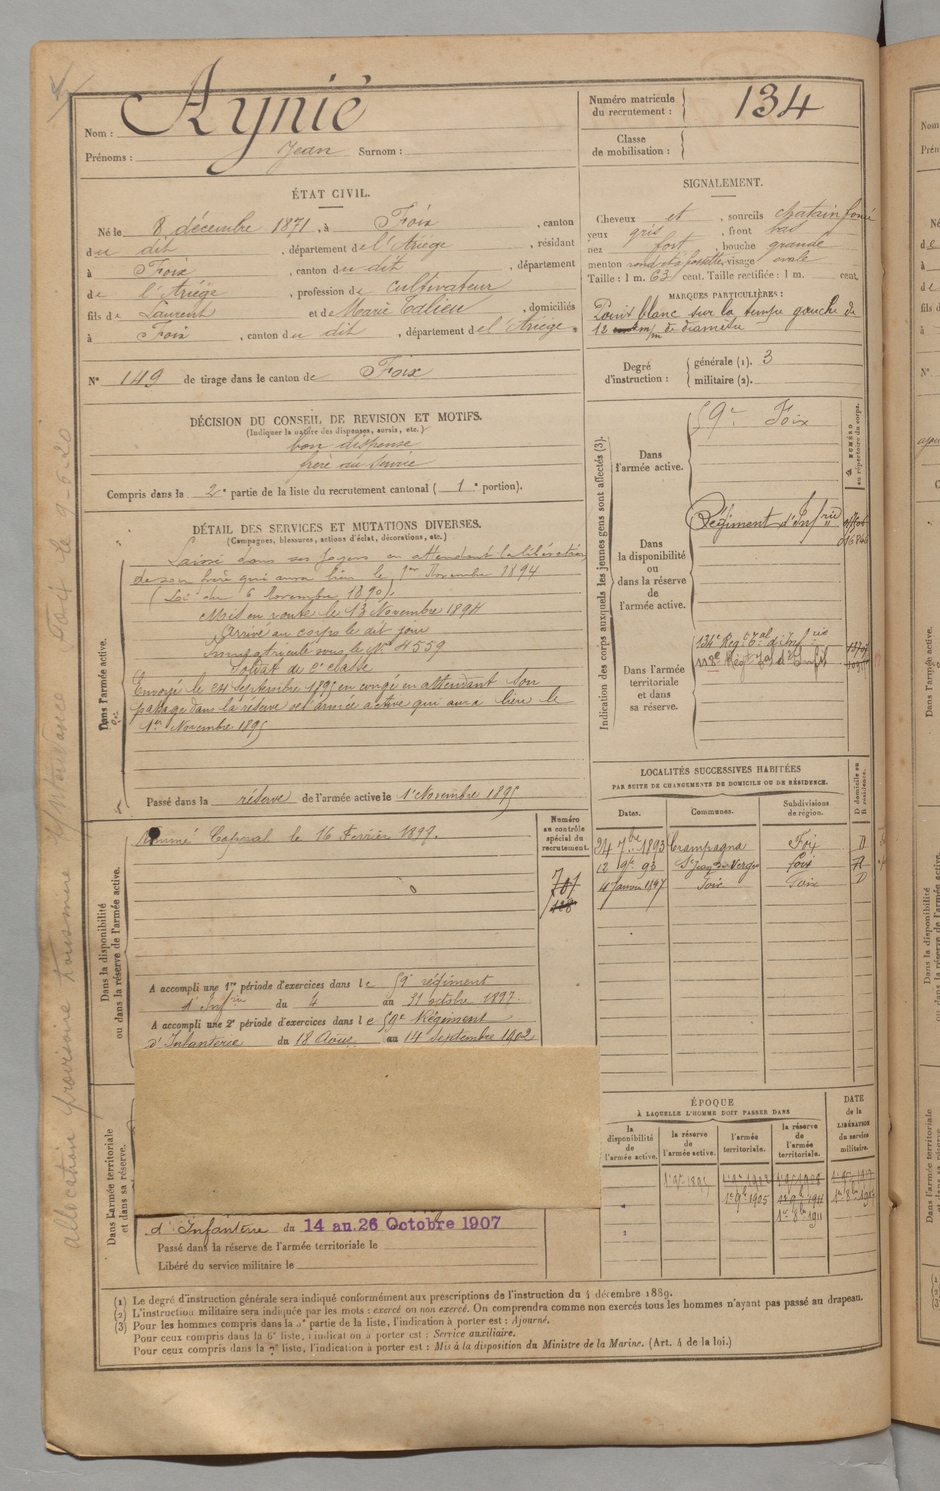 Nom : Aynié
Prénoms : Jean Surnom :
Numéro matricule du recrutement : 134
Classe de mobilisation :
ÉTAT CIVIL.
Né le 8 décembre 1871, à Foix, canton
du dit, département de l'Ariège, résidant
à Foix, canton du dit, département
de l'Ariège, profession de cultivateur
fils de Laurent et de Marie Talieu, domiciliés
à Foix, canton du dit, département de l'Ariège.
N° 149 de tirage dans le canton de Foix
SIGNALEMENT.
Cheveux et, sourcils chatain foncé
yeux gris, front bas
nez fort, bouche grande
menton rond et à fossette, visage ovale
Taille : 1 m. 63 cent. Taille rectifiée : 1 m. cent.
MARQUES PARTICULIÈRES :
Point blanc sur la tempe gauche de
12 m/m de diamètre
Degré d'instruction : générale (1). 3
militaire (2).
DÉCISION DU CONSEIL DE REVISION ET MOTIFS.
(Indiquer la nature des dispenses, sursis, etc.)
bon dispensé
frère au service
Compris dans la 2e partie de la liste du recrutement cantonal ( 1e portion).
DÉTAIL DES SERVICES ET MUTATIONS DIVERSES.
(Campagnes, blessures, actions d'éclat, décorations, etc.)
Dans l'armée active.
Laissé dans ses foyers en attendant la libération
de son frère qui aura lieu le 1er Novembre 1894
(Loi du 6 Novembre 1890).
Mis en route le 13 Novembre 1894
Arrivé au corps le dit jour
Immatriculé sous le N° 4559
Soldat de 2e classe
Envoyé le 24 septembre 1895 en congé en attendant son
passage dans la réserve de l'armée active qui aura lieu le
1er Novembre 1895
Passé dans la réserve de l'armée active le 1er Novembre 1895
Indication des corps auxquels les jeunes gens sont affectés (3).
NUMÉRO au répertoire du corps.
Dans l'armée active.
59e Foix
Dans la disponibilité ou dans la réserve de l'armée active.
Régiment d'Infrie
Dans l'armée territoriale et dans sa réserve.
134e Régt Tal d'Infrie
Régt Tal d'Infie
LOCALITÉS SUCCESSIVES HABITÉES
PAR SUITE DE CHANGEMENTS DE DOMICILE OU DE RÉSIDENCE.
Dates. Communes. Subdivisions de région. D domicile ou R résidence.
24 7bre 1893 Crampagna Foix D
12 9bre 93 St Jean de Verges Foix
4 Janvier 1897 Foix Foix D
Dans la disponibilité ou dans la réserve de l'armée active.
Numéro au contrôle spécial du recrutement.
Nommé Caporal le 16 Février 1897.
A accompli une 1re période d'exercices dans le 59e régiment
d'Infrie du 4 au 31 octobre 1897.
A accompli une 2e période d'exercices dans le 59e Régiment
d'Infanterie du 18 Août au 14 septembre 1902
Dans l'armée territoriale et dans sa réserve.
d'Infanterie du 14 au 26 Octobre 1907
Passé dans la réserve de l'armée territoriale le
Libéré du service militaire le
ÉPOQUE
À LAQUELLE L'HOMME DOIT PASSER DANS
la disponibilité de l'armée active. la réserve de l'armée active. l'armée territoriale. la réserve de l'armée territoriale.
DATE de la LIBÉRATION du service militaire.
1er 9bre 1905
1er 8bre 1911
(1) Le degré d'instruction générale sera indiqué conformément aux prescriptions de l'instruction du 4 décembre 1889.
(2) L'instruction militaire sera indiquée par les mots : exercé ou non exercé. On comprendra comme non exercés tous les hommes n'ayant pas passé au drapeau.
(3) Pour les hommes compris dans la 5e partie de la liste, l'indication à porter est : Ajourné.
Pour ceux compris dans la 6e liste, l'indication à porter est : Service auxiliaire.
Pour ceux compris dans la 7e liste, l'indication à porter est : Mis à la disposition du Ministre de la Marine. (Art. 4 de la loi.)